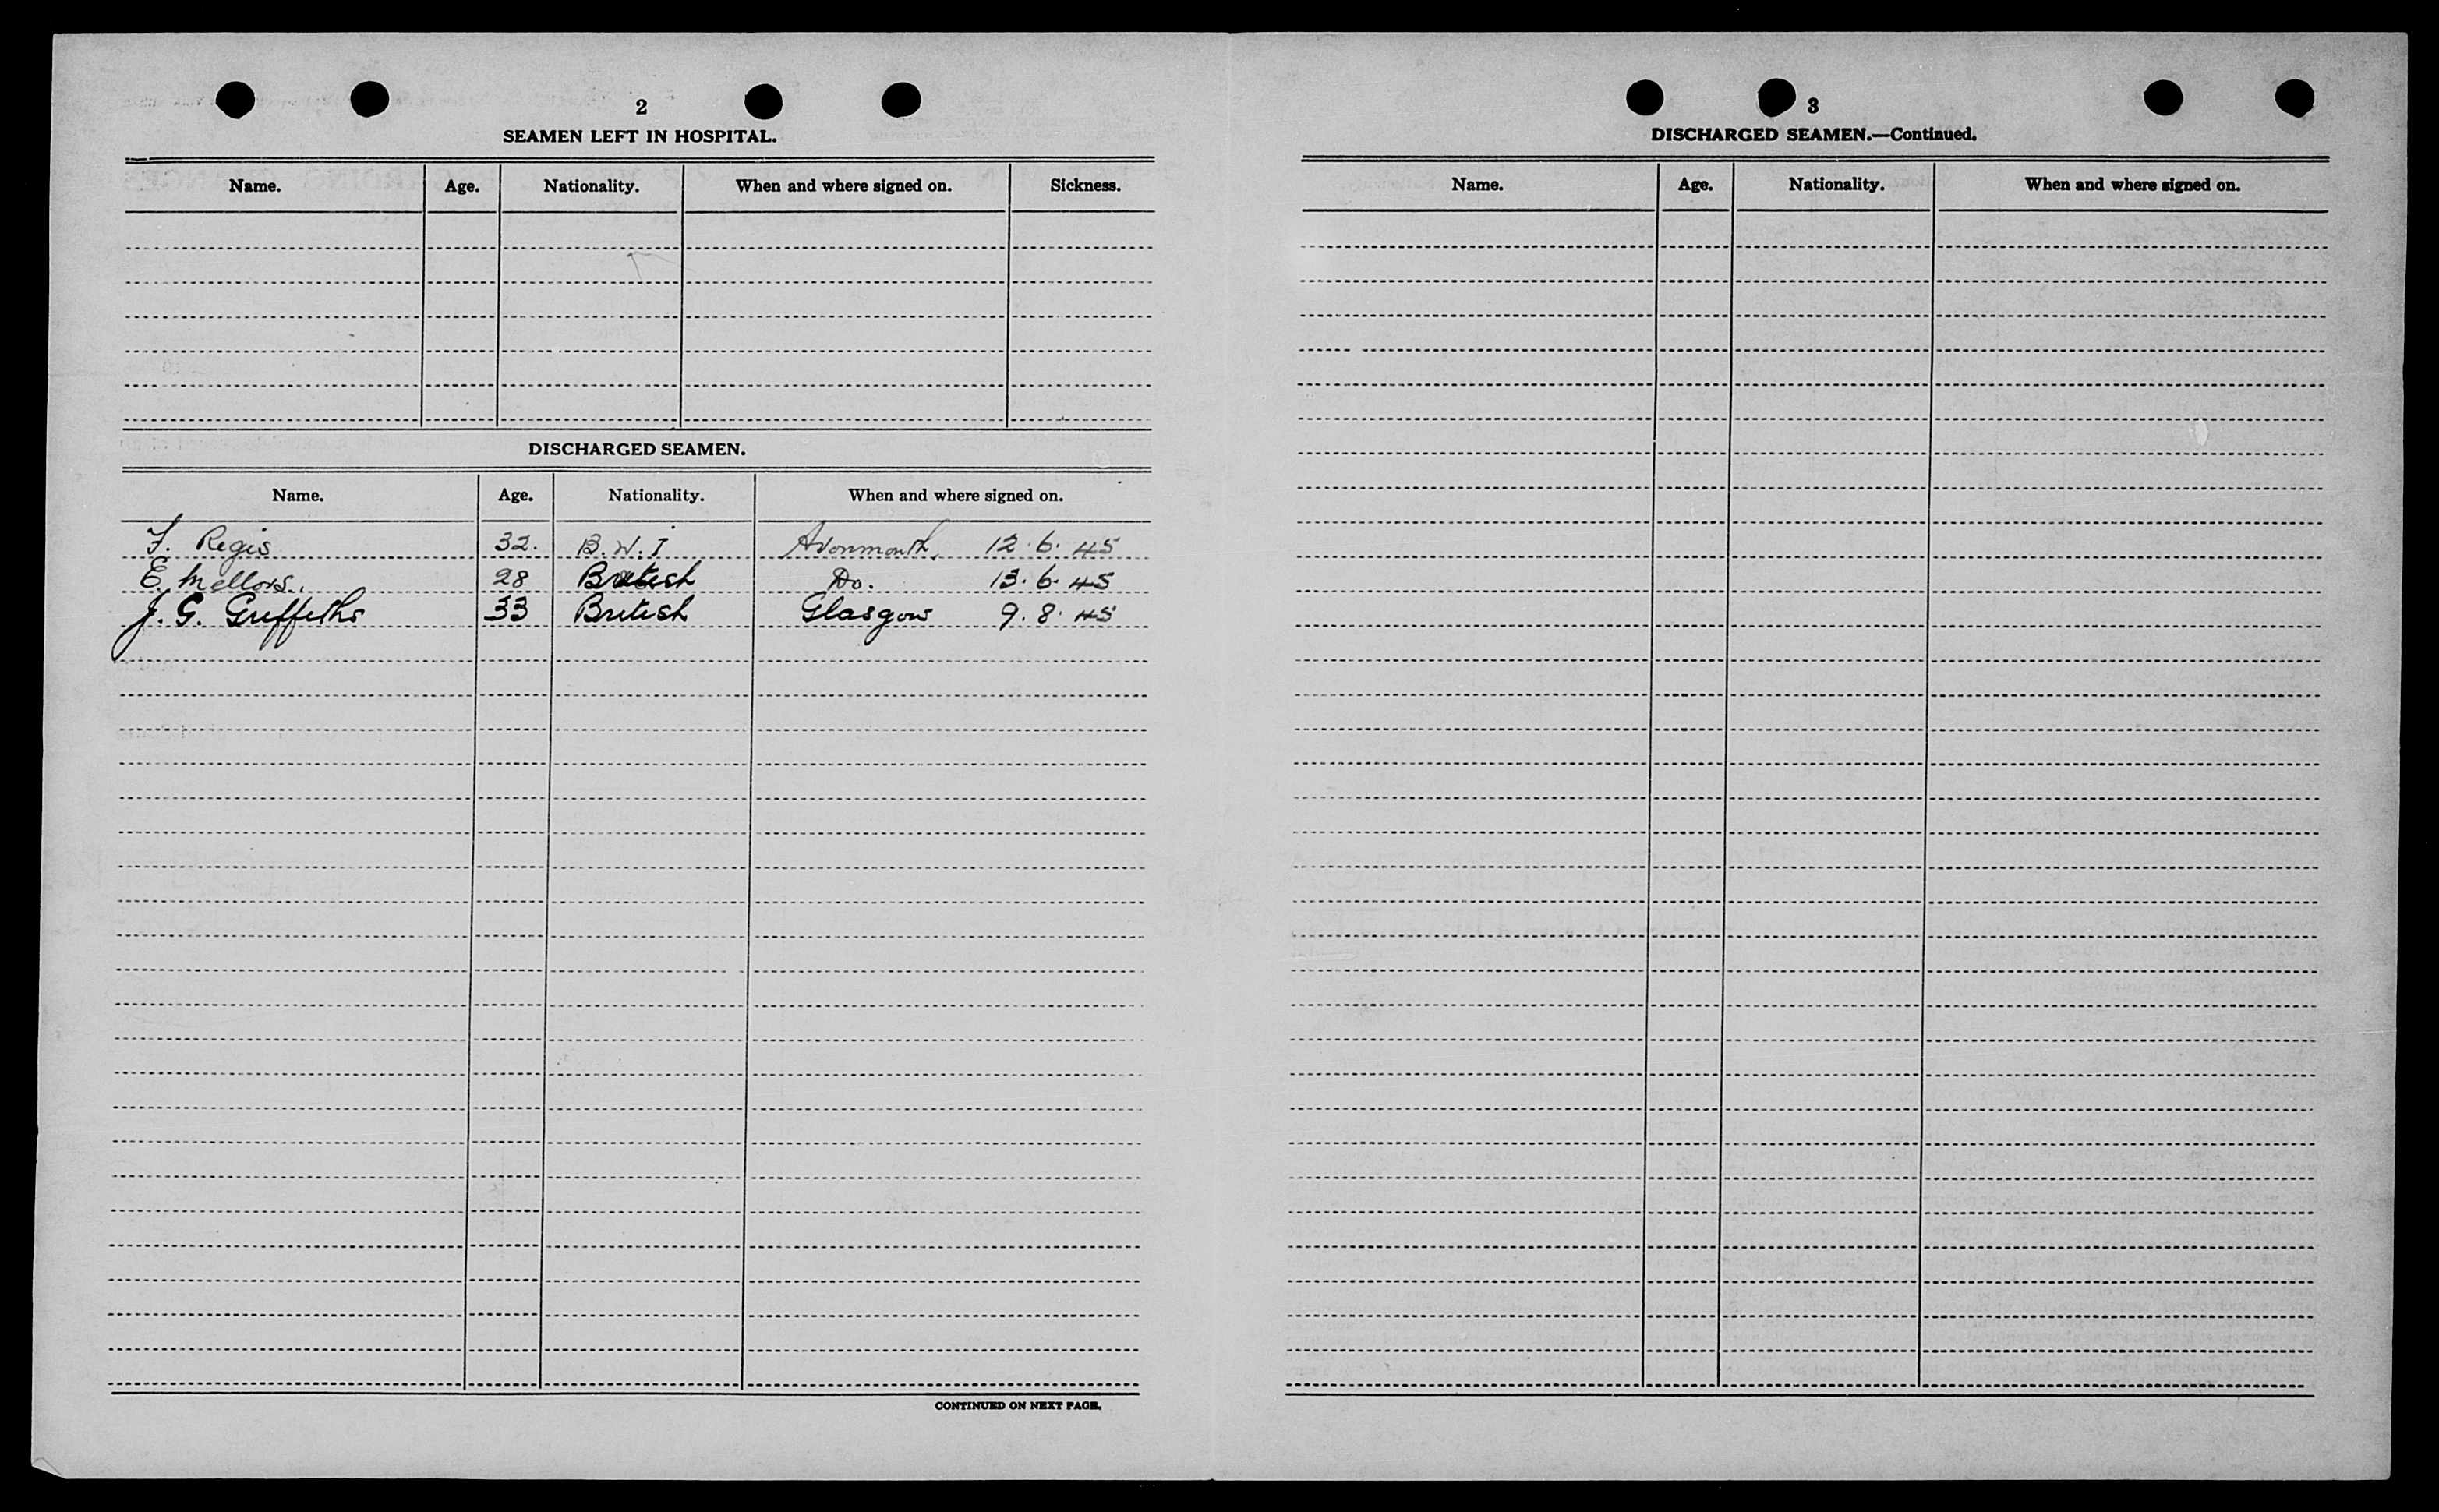 2
SEAMEN LEFT IN HOSPITAL.
Name. Age. Nationality. When and where signed on. Sickness.
DISCHARGED SEAMEN.
Name. Age. Nationality. When and where signed on.
F. Regis 32. B.W.I Avonmouth, 12.6.45
E. Mellors. 28 British Do. 13.6.45
J. G. Griffiths 33 British Glasgow 9.8.45
CONTINUED ON NEXT PAGE.
3
DISCHARGED SEAMEN.—Continued.
Name. Age. Nationality. When and where signed on.